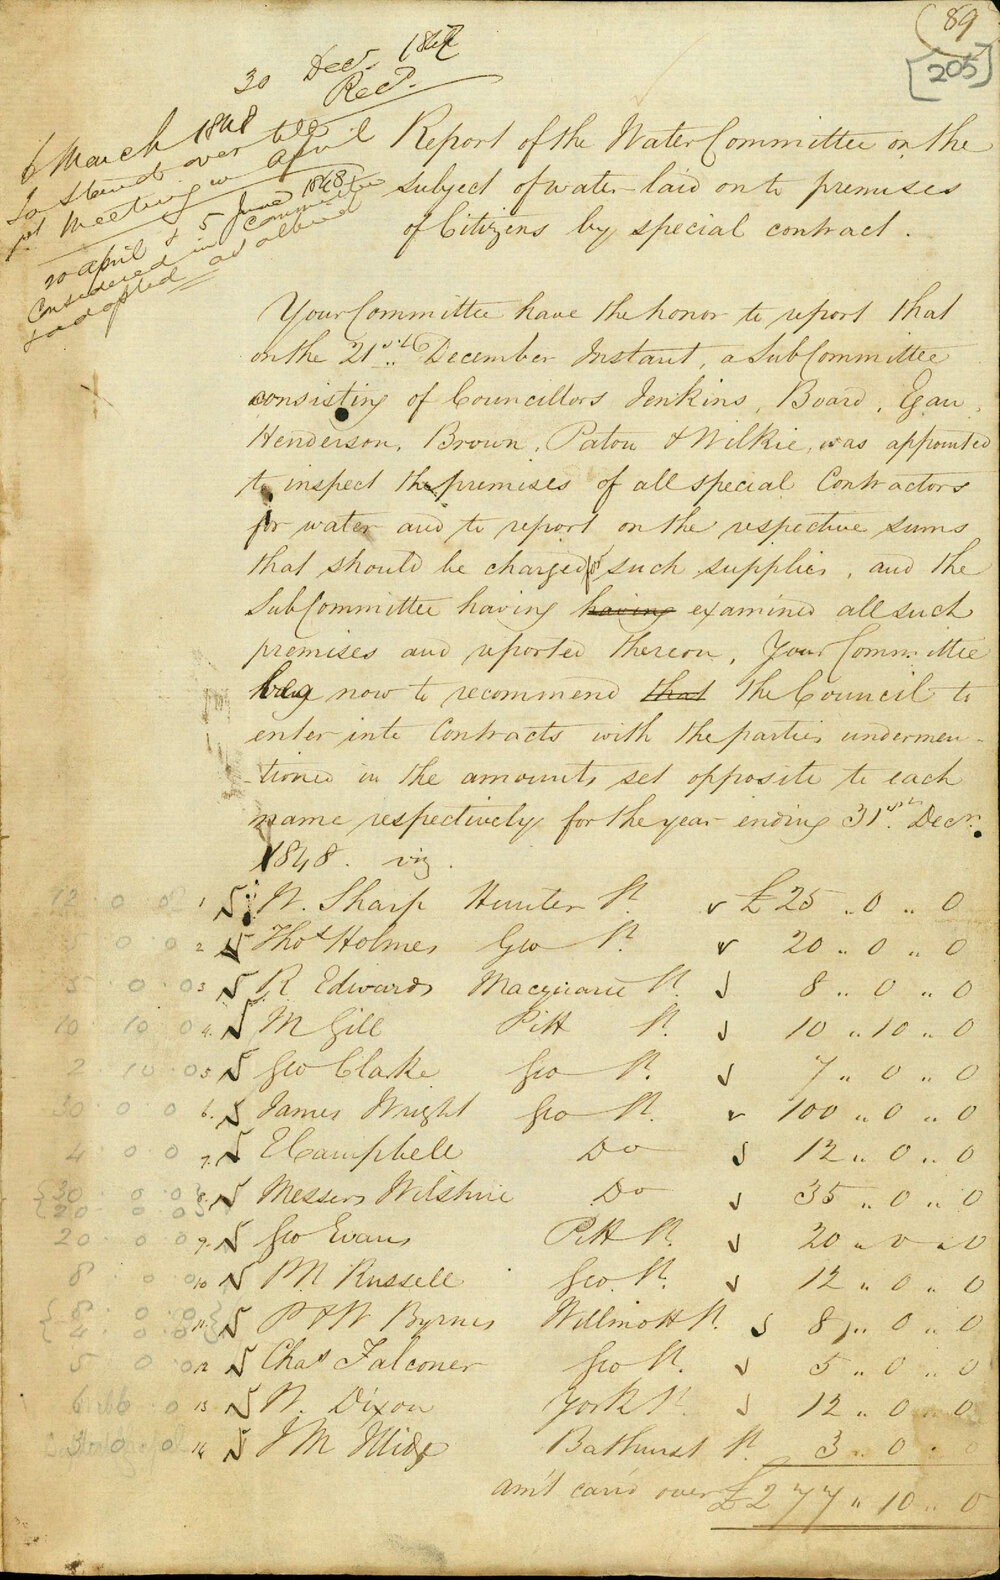 (89
[205]
30 Decr. 1847
Recd.
6 March 1848
To stand over till
1st Meeting in April
20 April & 5 June 1848
Considered in Committee
& adopted as altered
Report of the Water Committee on the
subject of water laid on to premises
of Citizens by special contract.
Your Committee have the honor to report that
on the 21st December Instant, a SubCommittee
consisting of Councillors Jenkins, Board, Egan,
Henderson, Brown, Paton & Wilkie, was appointed
to inspect the premises of all special Contractors
for water and to report on the respective sums
that should be charged for such supplies, and the
SubCommittee having having examined all such
premises and reported thereon, Your Committee
beg now to recommend that the Council to
enter into Contracts with the parties undermen-
-tioned in the amounts set opposite to each
name respectively for the year ending 31st Decr.
1848. viz.
12 . 0 . 0 1 √ W. Sharp Hunter St. √ £25 .. 0 .. 0
5 . 0 . 0 2 √ Thos Holmes Geo St. √ 20 .. 0 .. 0
5 . 0 . 0 3 √ R Edwards Macquarie St. √ 8 .. 0 .. 0
10 . 10 . 0 4. √ M Gill Pitt St. √ 10 .. 10 .. 0
2 . 10 . 0 5 √ Geo Clarke Geo St. √ 7 .. 0 .. 0
30 . 0 . 0 6. √ James Wright Geo St. √ 100 .. 0 .. 0
4 . 0 . 0 7. √ E Campbell Do √ 12 .. 0 .. 0
{30 . 0 . 0} 8. √ Messrs Wilshire Do √ 35 .. 0 .. 0
{20 . 0 . 0}
20 . 0 . 0 9. √ Geo Evans Pitt St. √ 20 .. 0 .. 0
8 . 0 . 0 10 √ M. Russell Geo. St. √ 12 .. 0 .. 0
{8 . 0 . 0} 11. √ P & W Byrnes Willmott St. √ 8 .. 0 .. 0
{4 . 0 . 0}
5 . 0 . 0 12 √ Chas Falconer Geo St. √ 5 .. 0 .. 0
13 √ W. Dixon York St. √ 12 .. 0 .. 0
3 . 0 . 0 14 √ J M Illidge Bathurst St. 3 .. 0 .. 0
am't car'd over £277 .. 10 .. 0